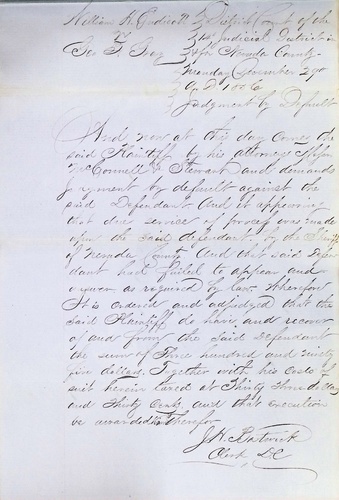 William H. Endicott } District Court of the
vs } 14th Judicial District in
Geo. F. } & for Nevada County
} Monday November 2nd
} A.D.
} Judgment by Default
And now at this day comes the
said Plaintiff by his attorneys
McConnell & Stewart and demands
judgment by default against the
said Defendant And it appearing
that due service of process was made
upon the said defendant by the Sheriff
of Nevada County And that said Defen
dant had failed to appear and
answer as required by law. Wherefore
It is ordered and adjudged that the
said Plaintiff do have and recover
of and from the said Defendant
the sum of Three hundred and ninety
five dollars. Together with his Costs of
suit herein taxed at Thirty three dollars
and thirty Cents and that execution
be awarded therefor
J. H. Bostwick
Clerk D.C.